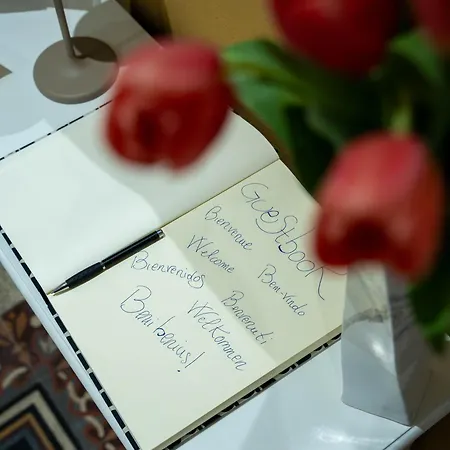 GUEStbook
Bienvenue
Welcome
Bem-vindo
Bienvenidos
Benvenuti
Willkommen